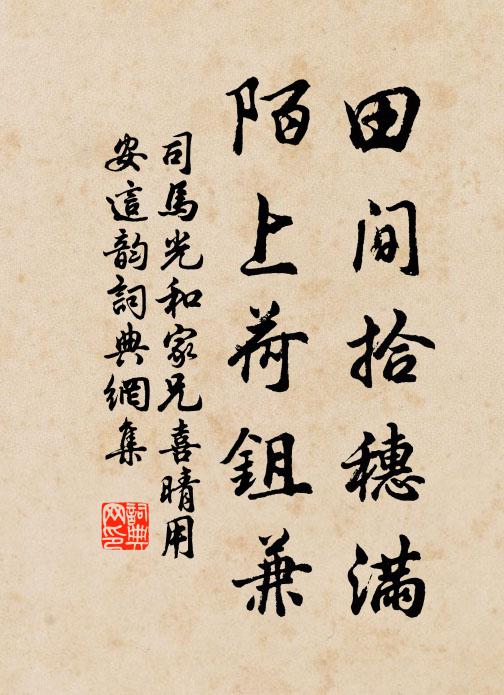 田間拾穗滿
陌上荷鉏兼
司馬光和家兄喜晴用
安這韵詞典網集
詞典
网印